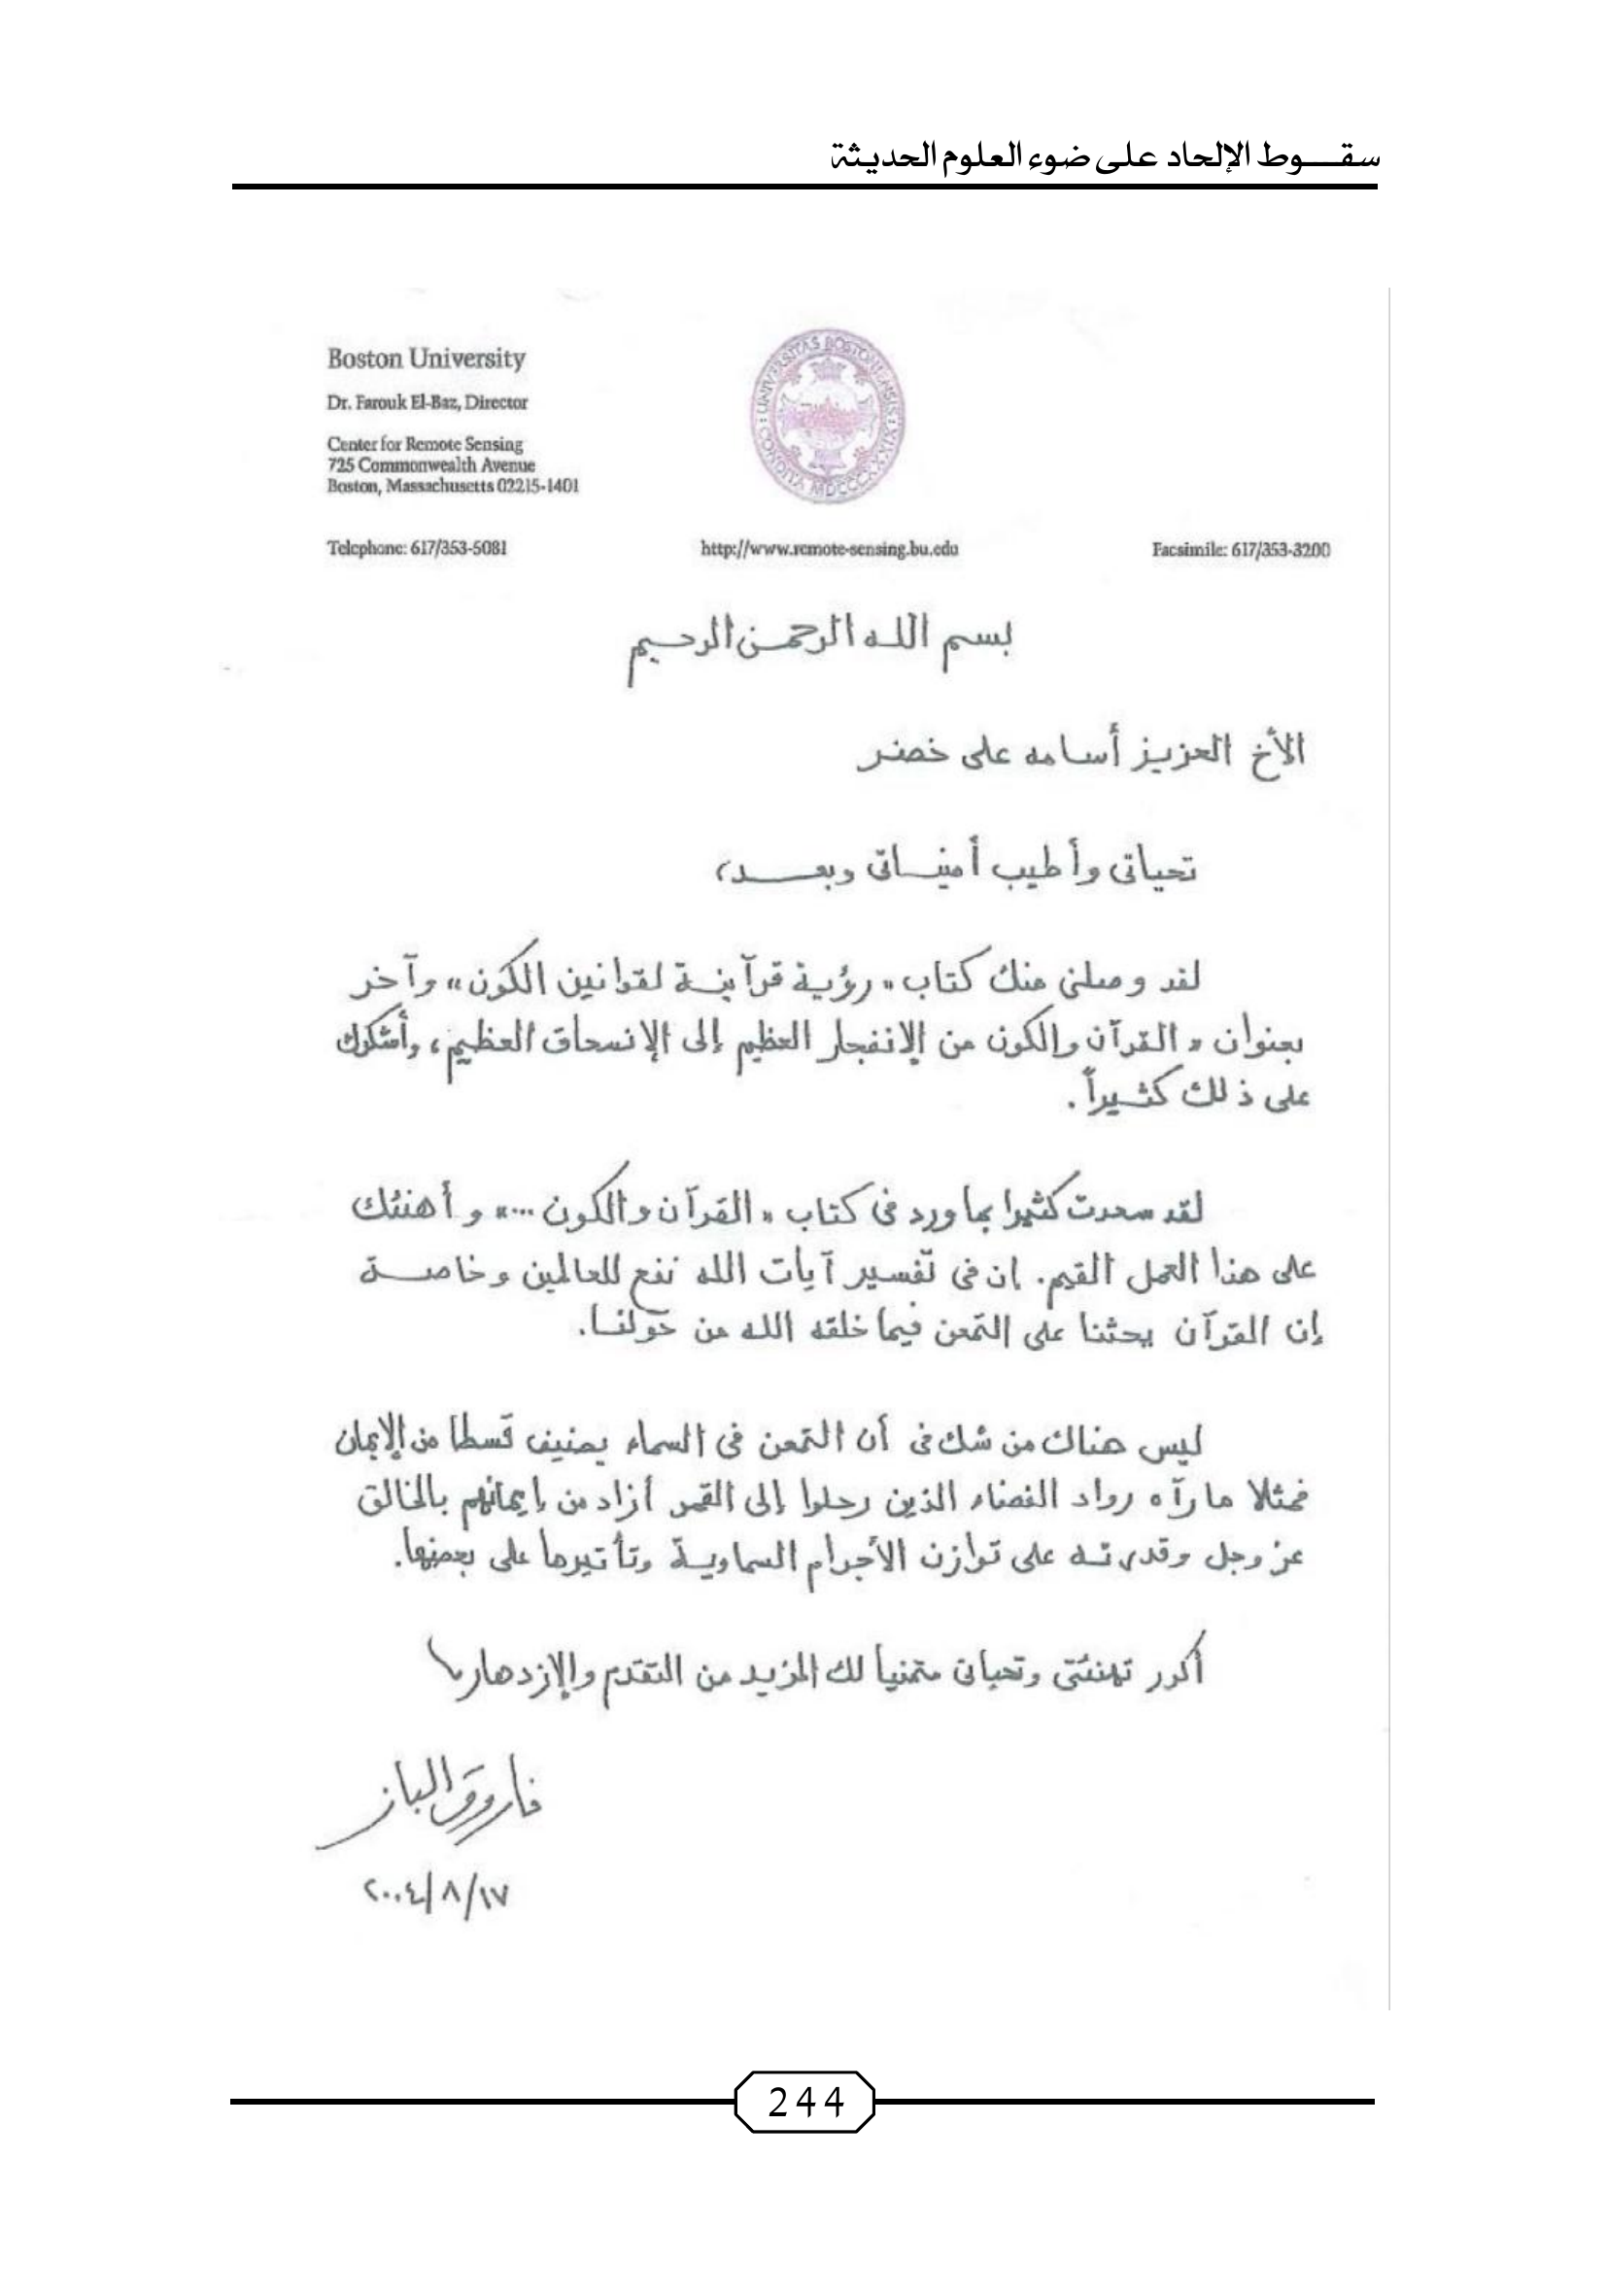 سقـــوط الإلحاد على ضوء العلوم الحديثة
Boston University
Dr. Farouk El-Baz, Director
Center for Remote Sensing
725 Commonwealth Avenue
Boston, Massachusetts 02215-1401
UNIVERSITAS BOSTONIENSIS
CONDITA MDCCCXXXIX
Telephone: 617/353-5081
http://www.remote-sensing.bu.edu
Facsimile: 617/353-3200
بسم الله الرحمن الرحيم
الأخ العزيز أسامه على خضر
تحياتى وأطيب أمنياتى وبعد،
لقد وصلنى منك كتاب «رؤية قرآنية لقوانين الكون» وآخر
بعنوان «القرآن والكون من الإنفجار العظيم إلى الإنسحاق العظيم، وأشكرك
على ذلك كثيراً.
لقد سعدت كثيرا بما ورد فى كتاب «القرآن والكون ...» وأهنئك
على هذا العمل القيم. إن فى تفسير آيات الله نفع للعالمين وخاصة
إن القرآن يحثنا على التمعن فيما خلقه الله من حولنا.
ليس هناك من شك فى أن التمعن فى السماء يضيف قسطا من الإيمان
فمثلا ما رآه رواد الفضاء الذين رحلوا إلى القمر أزاد من إيمانهم بالخالق
عز وجل وقدرته على توازن الأجرام السماوية وتأثيرها على بعضها.
أكرر تهنئتى وتحياتى متمنيا لك المزيد من التقدم والإزدهار
فاروق الباز
٢٠٠٤/٨/١٧
244